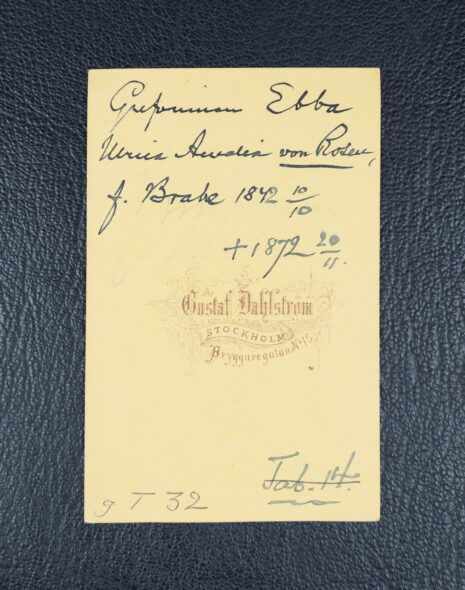 Grefvinnan Ebba
Ulrica Amalia von Rosen,
f. Brahe 1842 10/10
+ 1872 20/11.
Gustaf Dahlström
STOCKHOLM
Bryggaregatan No 15.
Tab. 14.
g T 32